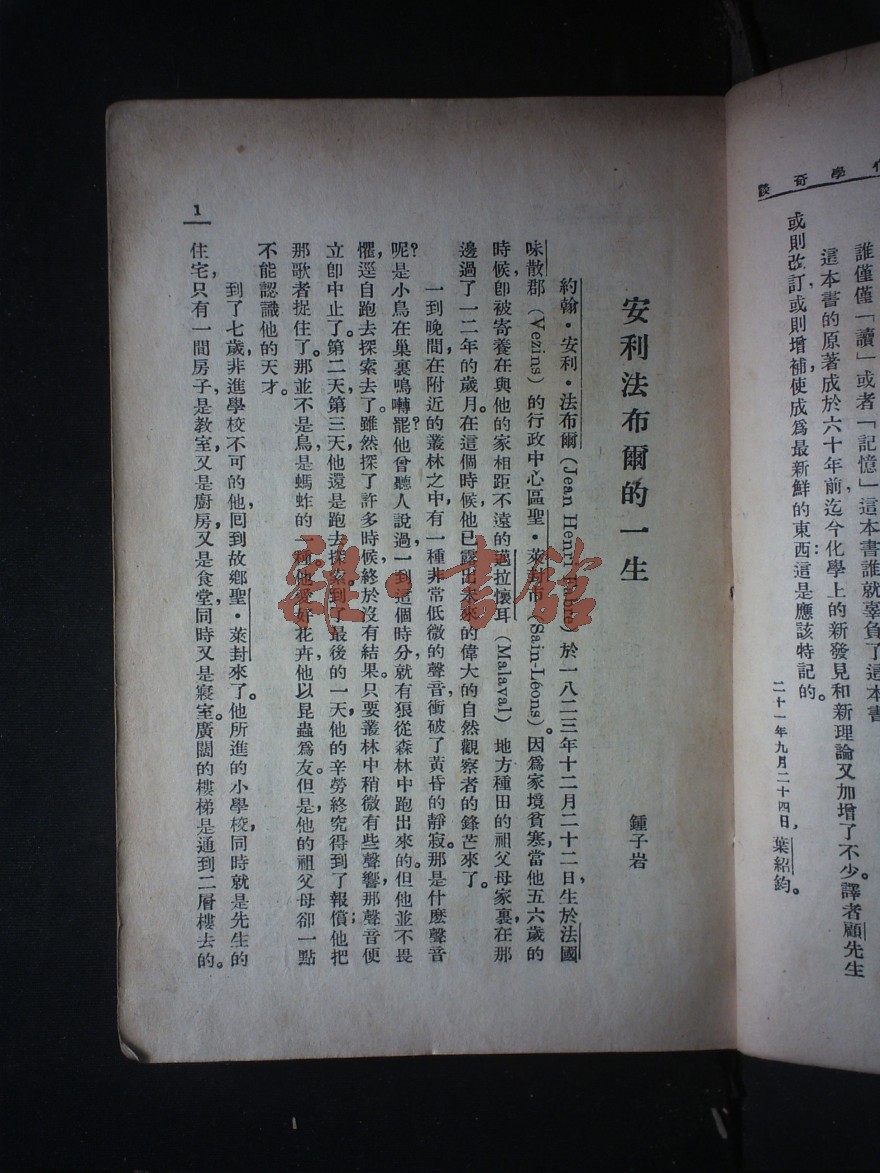 化學奇談
誰僅僅「讀」或者「記憶」這本書誰就辜負了這本書
這本書的原著成於六十年前，迄今化學上的新發見和新理論又加增了不少。譯者顧先生
或則改訂，或則增補，使成爲最新鮮的東西：這是應該特記的。
二十一年九月二十四日，葉紹鈞。
安利法布爾的一生
鍾子岩
約翰・安利・法布爾（Jean Henri Fabre）於一八二三年十二月二十二日，生於法國
味散郡（Vezins）的行政中心區聖・萊封市（Sain-Léons）。因爲家境貧寒，當他五六歲的
時候，卽被寄養在與他的家相距不遠的邁拉懷耳（Malaval）地方種田的祖父母家裏，在那
邊過了一二年的歲月。在這個時候，他已露出未來的偉大的自然觀察者的鋒芒來了。
一到晚間，在附近的叢林之中，有一種非常低微的聲音，衝破了黃昏的靜寂。那是什麽聲音
呢？是小鳥在巢裏鳴囀罷？他曾聽人說過，一到這個時分，就有狼從森林中跑出來的。但他並不畏
懼，逕自跑去探索去了。雖然探了許多時候，終於沒有結果。只要叢林中稍微有些聲響，那聲音便
立卽中止了。第二天，第三天，他還是跑去探索。到了最後的一天，他的辛勞終究得到了報償；他把
那歌者捉住了。那並不是鳥，是螞蚱的一種。他愛好花卉，他以昆蟲爲友。但是，他的祖父母卻一點
不能認識他的天才。
到了七歲，非進學校不可的他，回到故鄉聖・萊封來了。他所進的小學校，同時就是先生的
住宅，只有一間房子，是教室，又是廚房，又是食堂，同時又是寢室。廣闊的樓梯是通到二層樓去的。
1
雜・書館